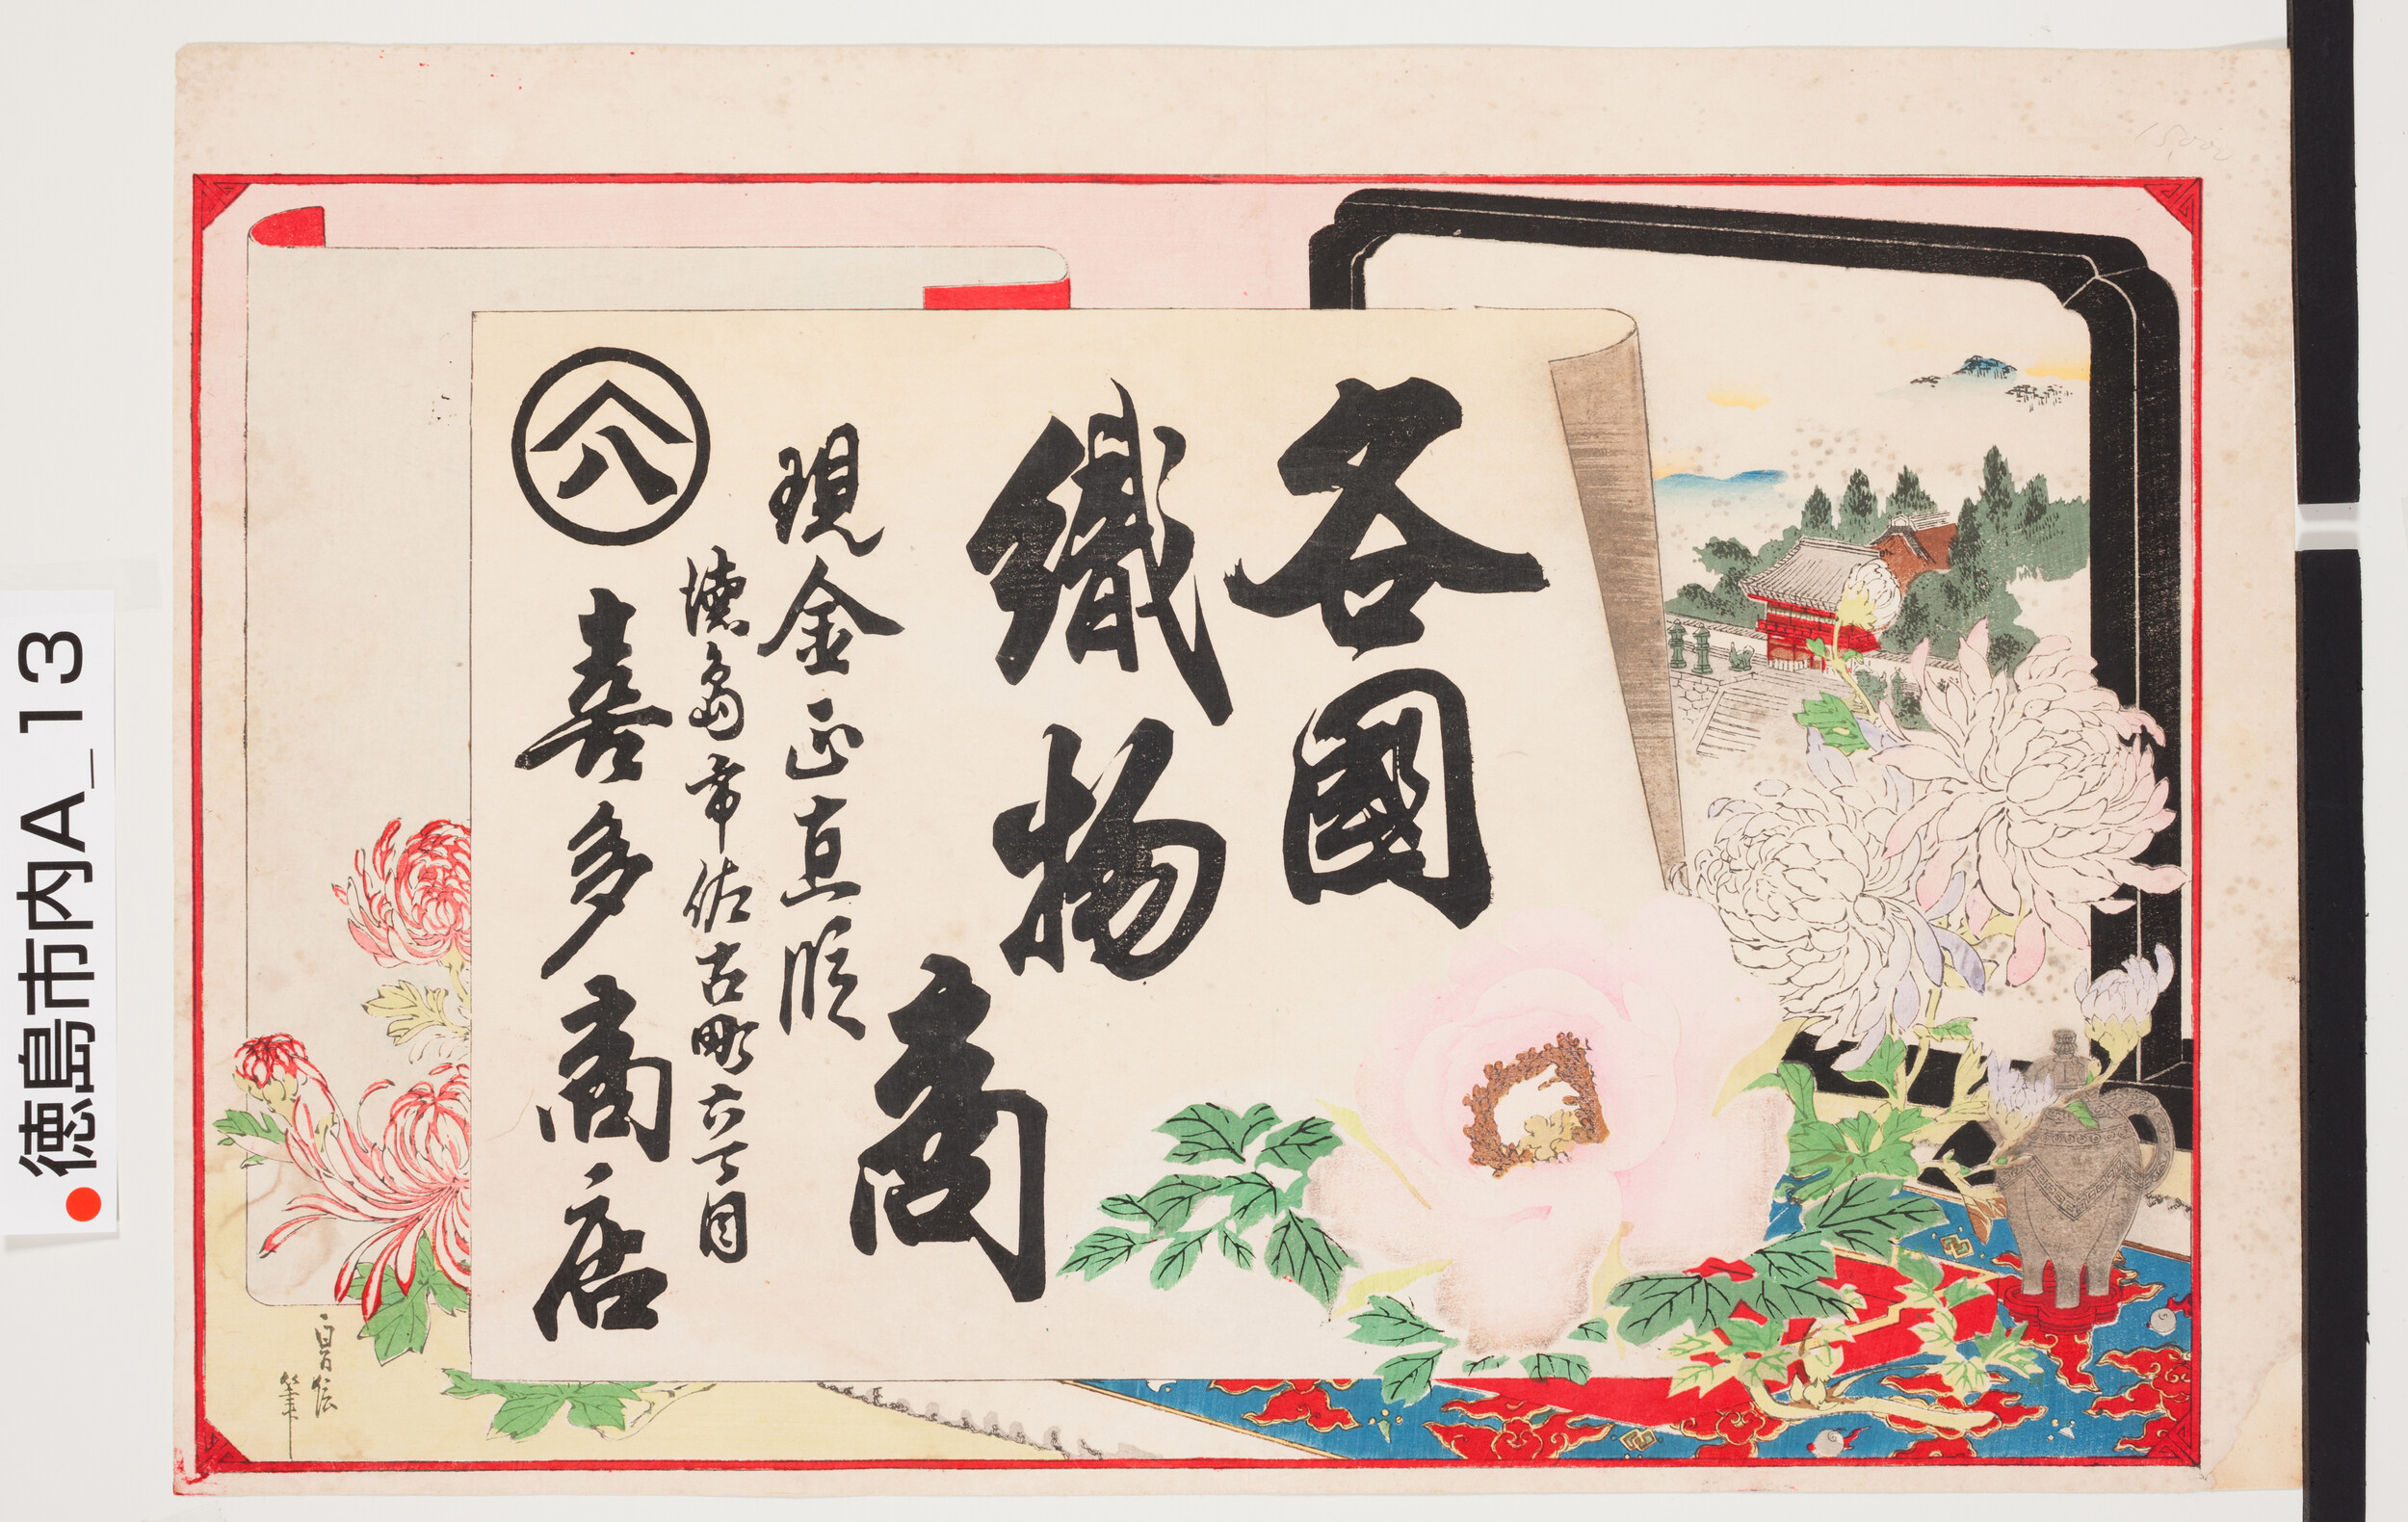 各國
織物
商
現金正直
徳島市佐古町六丁目
八
喜多商店
貞信
筆
15,000
徳島市内A_13